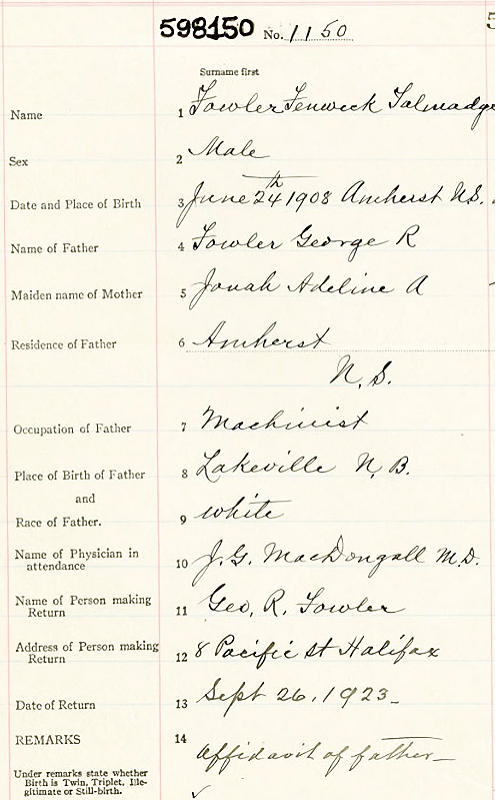 598150 No. 1150
Surname first
Name 1 Fowler Fenwick Talmadge
Sex 2 Male
Date and Place of Birth 3 June 24th 1908 Amherst N.S.
Name of Father 4 Fowler George R
Maiden name of Mother 5 Jonah Adeline A
Residence of Father 6 Amherst
N.S.
Occupation of Father 7 Machinist
Place of Birth of Father 8 Lakeville N.B.
and
Race of Father. 9 white
Name of Physician in
attendance 10 J.G. MacDougall M.D.
Name of Person making
Return 11 Geo. R. Fowler
Address of Person making
Return 12 8 Pacific St Halifax
Date of Return 13 Sept 26, 1923
REMARKS 14 Affidavit of father
Under remarks state whether
Birth is Twin, Triplet, Ille-
gitimate or Still-birth.